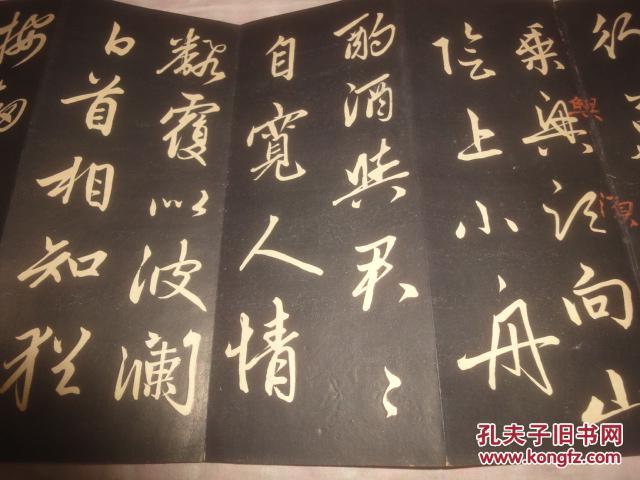 行萬
乘興須向山
興
須
陰上小舟
酌酒與君〻
自寬人情
翻覆似波瀾
白首相知猶
按劍
孔夫子旧书网
www.kongfz.com